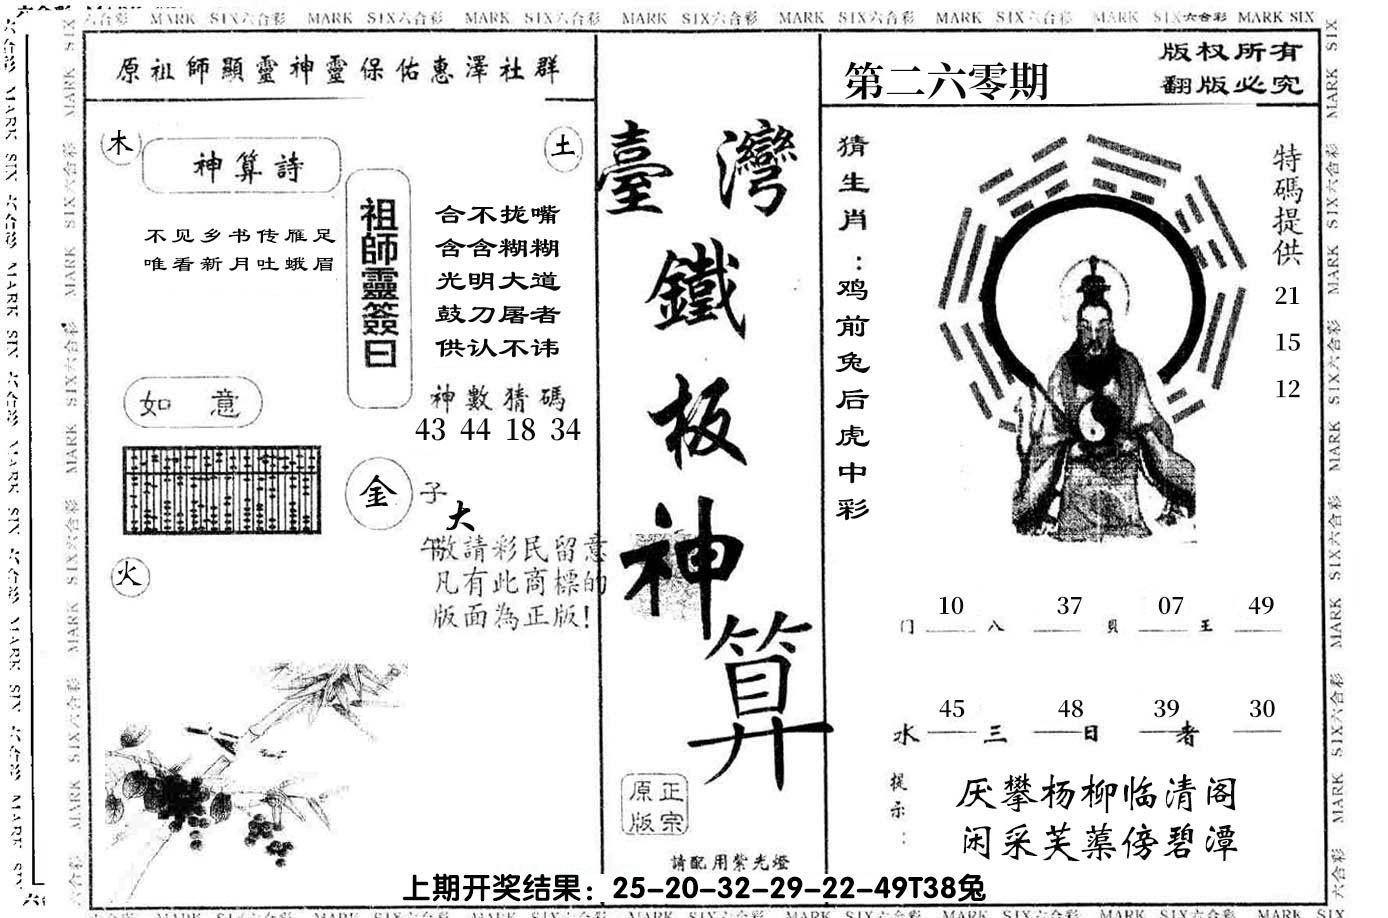 MARK SIX六合彩 MARK SIX六合彩 MARK SIX六合彩 MARK SIX六合彩 MARK SIX六合彩 MARK SIX六合彩 MARK SIX六合彩 MARK SIX
原祖師顯靈神靈保佑惠澤社群
木
神算詩
土
不见乡书传雁足
唯看新月吐蛾眉
祖師靈簽曰
合不拢嘴
含含糊糊
光明大道
鼓刀屠者
供认不讳
如 意
神數猜碼
43 44 18 34
金
子
大
午
敬請彩民留意
凡有此商標的
版面為正版!
火
臺灣
鐵
板
神
算
原正
版宗
請配用紫光燈
第二六零期
版权所有
翻版必究
猜生肖：鸡前兔后虎中彩
特碼提供
21
15
12
10 37 07 49
门 八 貝 王
45 48 39 30
水 三 日 者
提示：
厌攀杨柳临清阁
闲采芙蕖傍碧潭
上期开奖结果：25-20-32-29-22-49T38兔